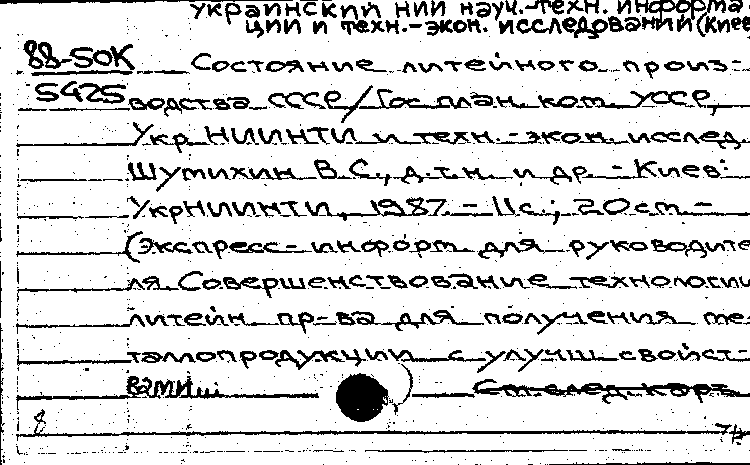 украинский нии науч.-техн. информа
ции и техн.-экон. исследований (Киев
88-50К Состояние литейного произ-
5425 водства СССР/Гос план. ком. УССР,
Укр НИИНТИ и техн.-экон. исслед.
Шутихин В.С., д.т.н. и др. - Киев:
УкрНИИНТИ, 1987. - 11с.; 20см. -
(Экспресс-информ. для руководите
ля. Совершенствование технологии
литейн. пр-ва для получения ме-
таллопродукции с улучш свойст-
вами... См.след.карт
8